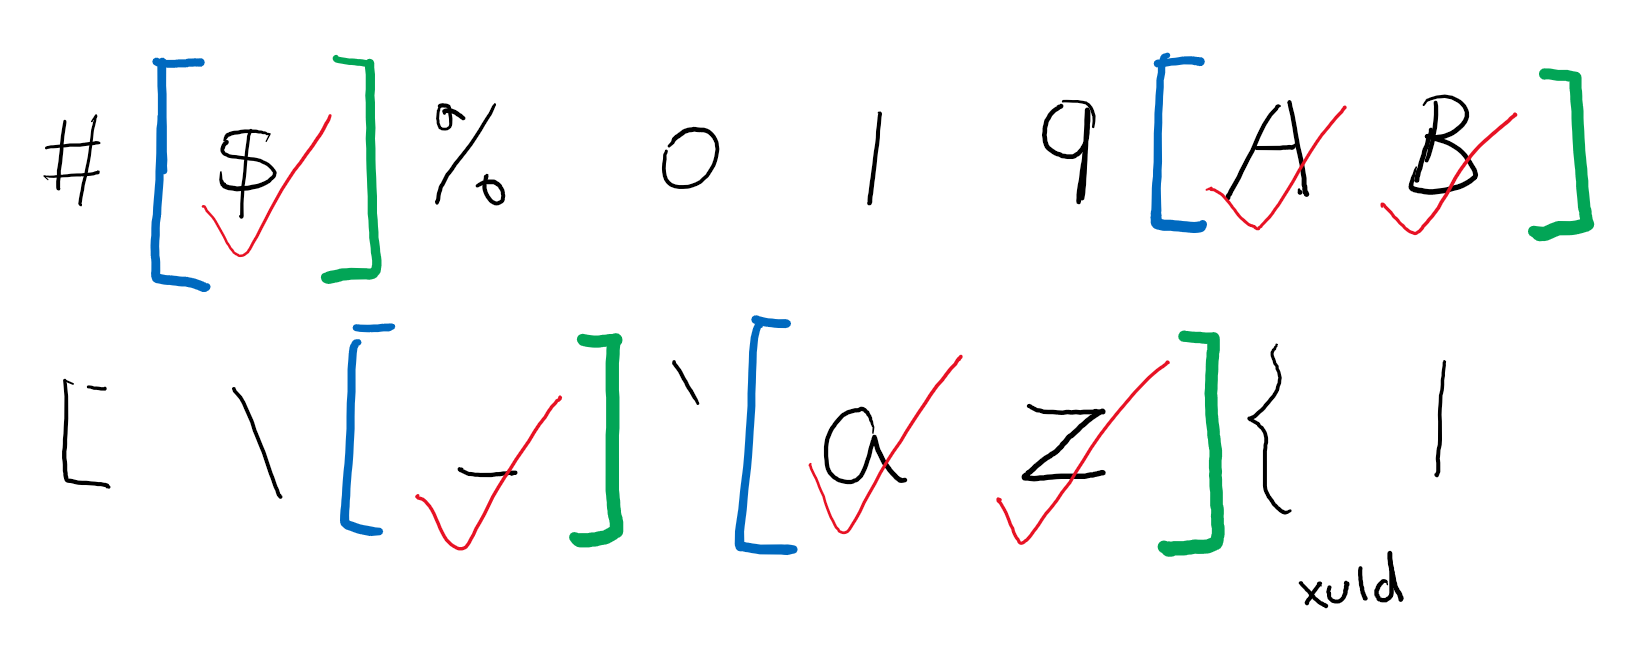 # [ $ ] % 0 1 9 [ A B ]
[ \ [ _ ] ` [ a z ] { |
xuld